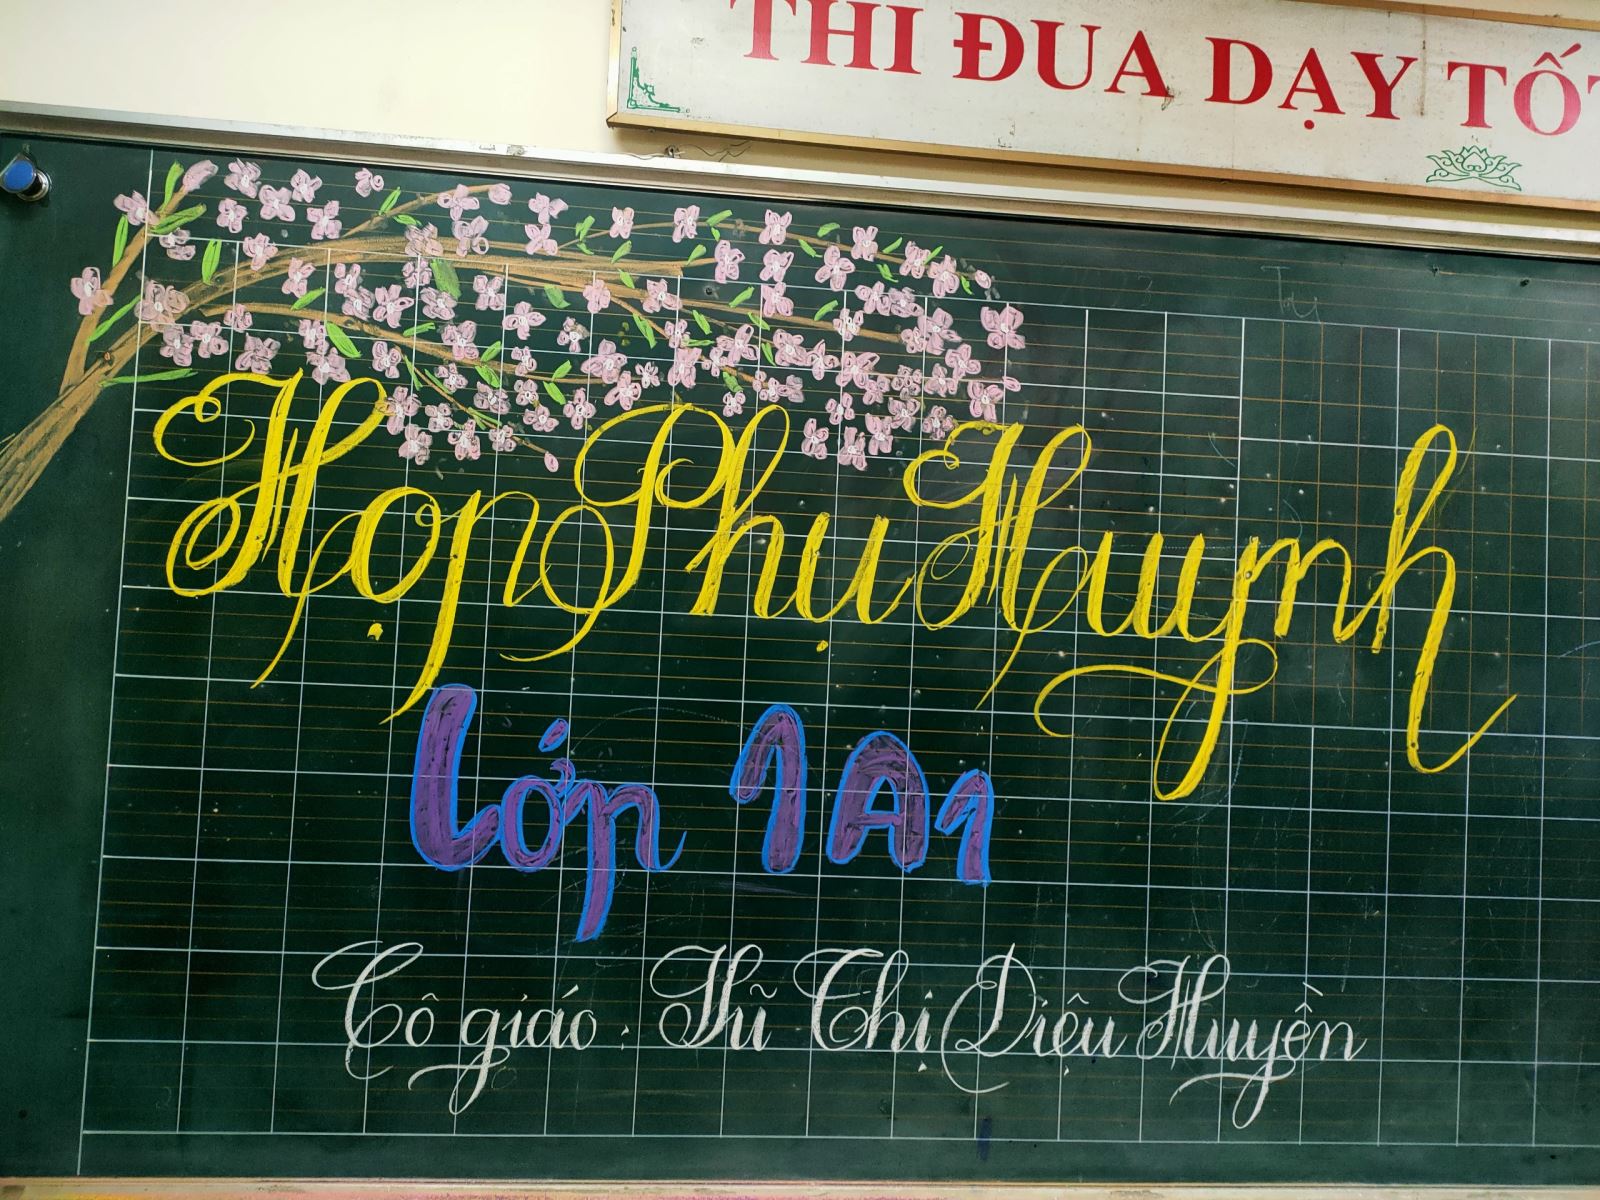 THI ĐUA DẠY TỐT
Họp Phụ Huynh
Lớp 1A1
Cô giáo: Vũ Thị Diệu Huyền